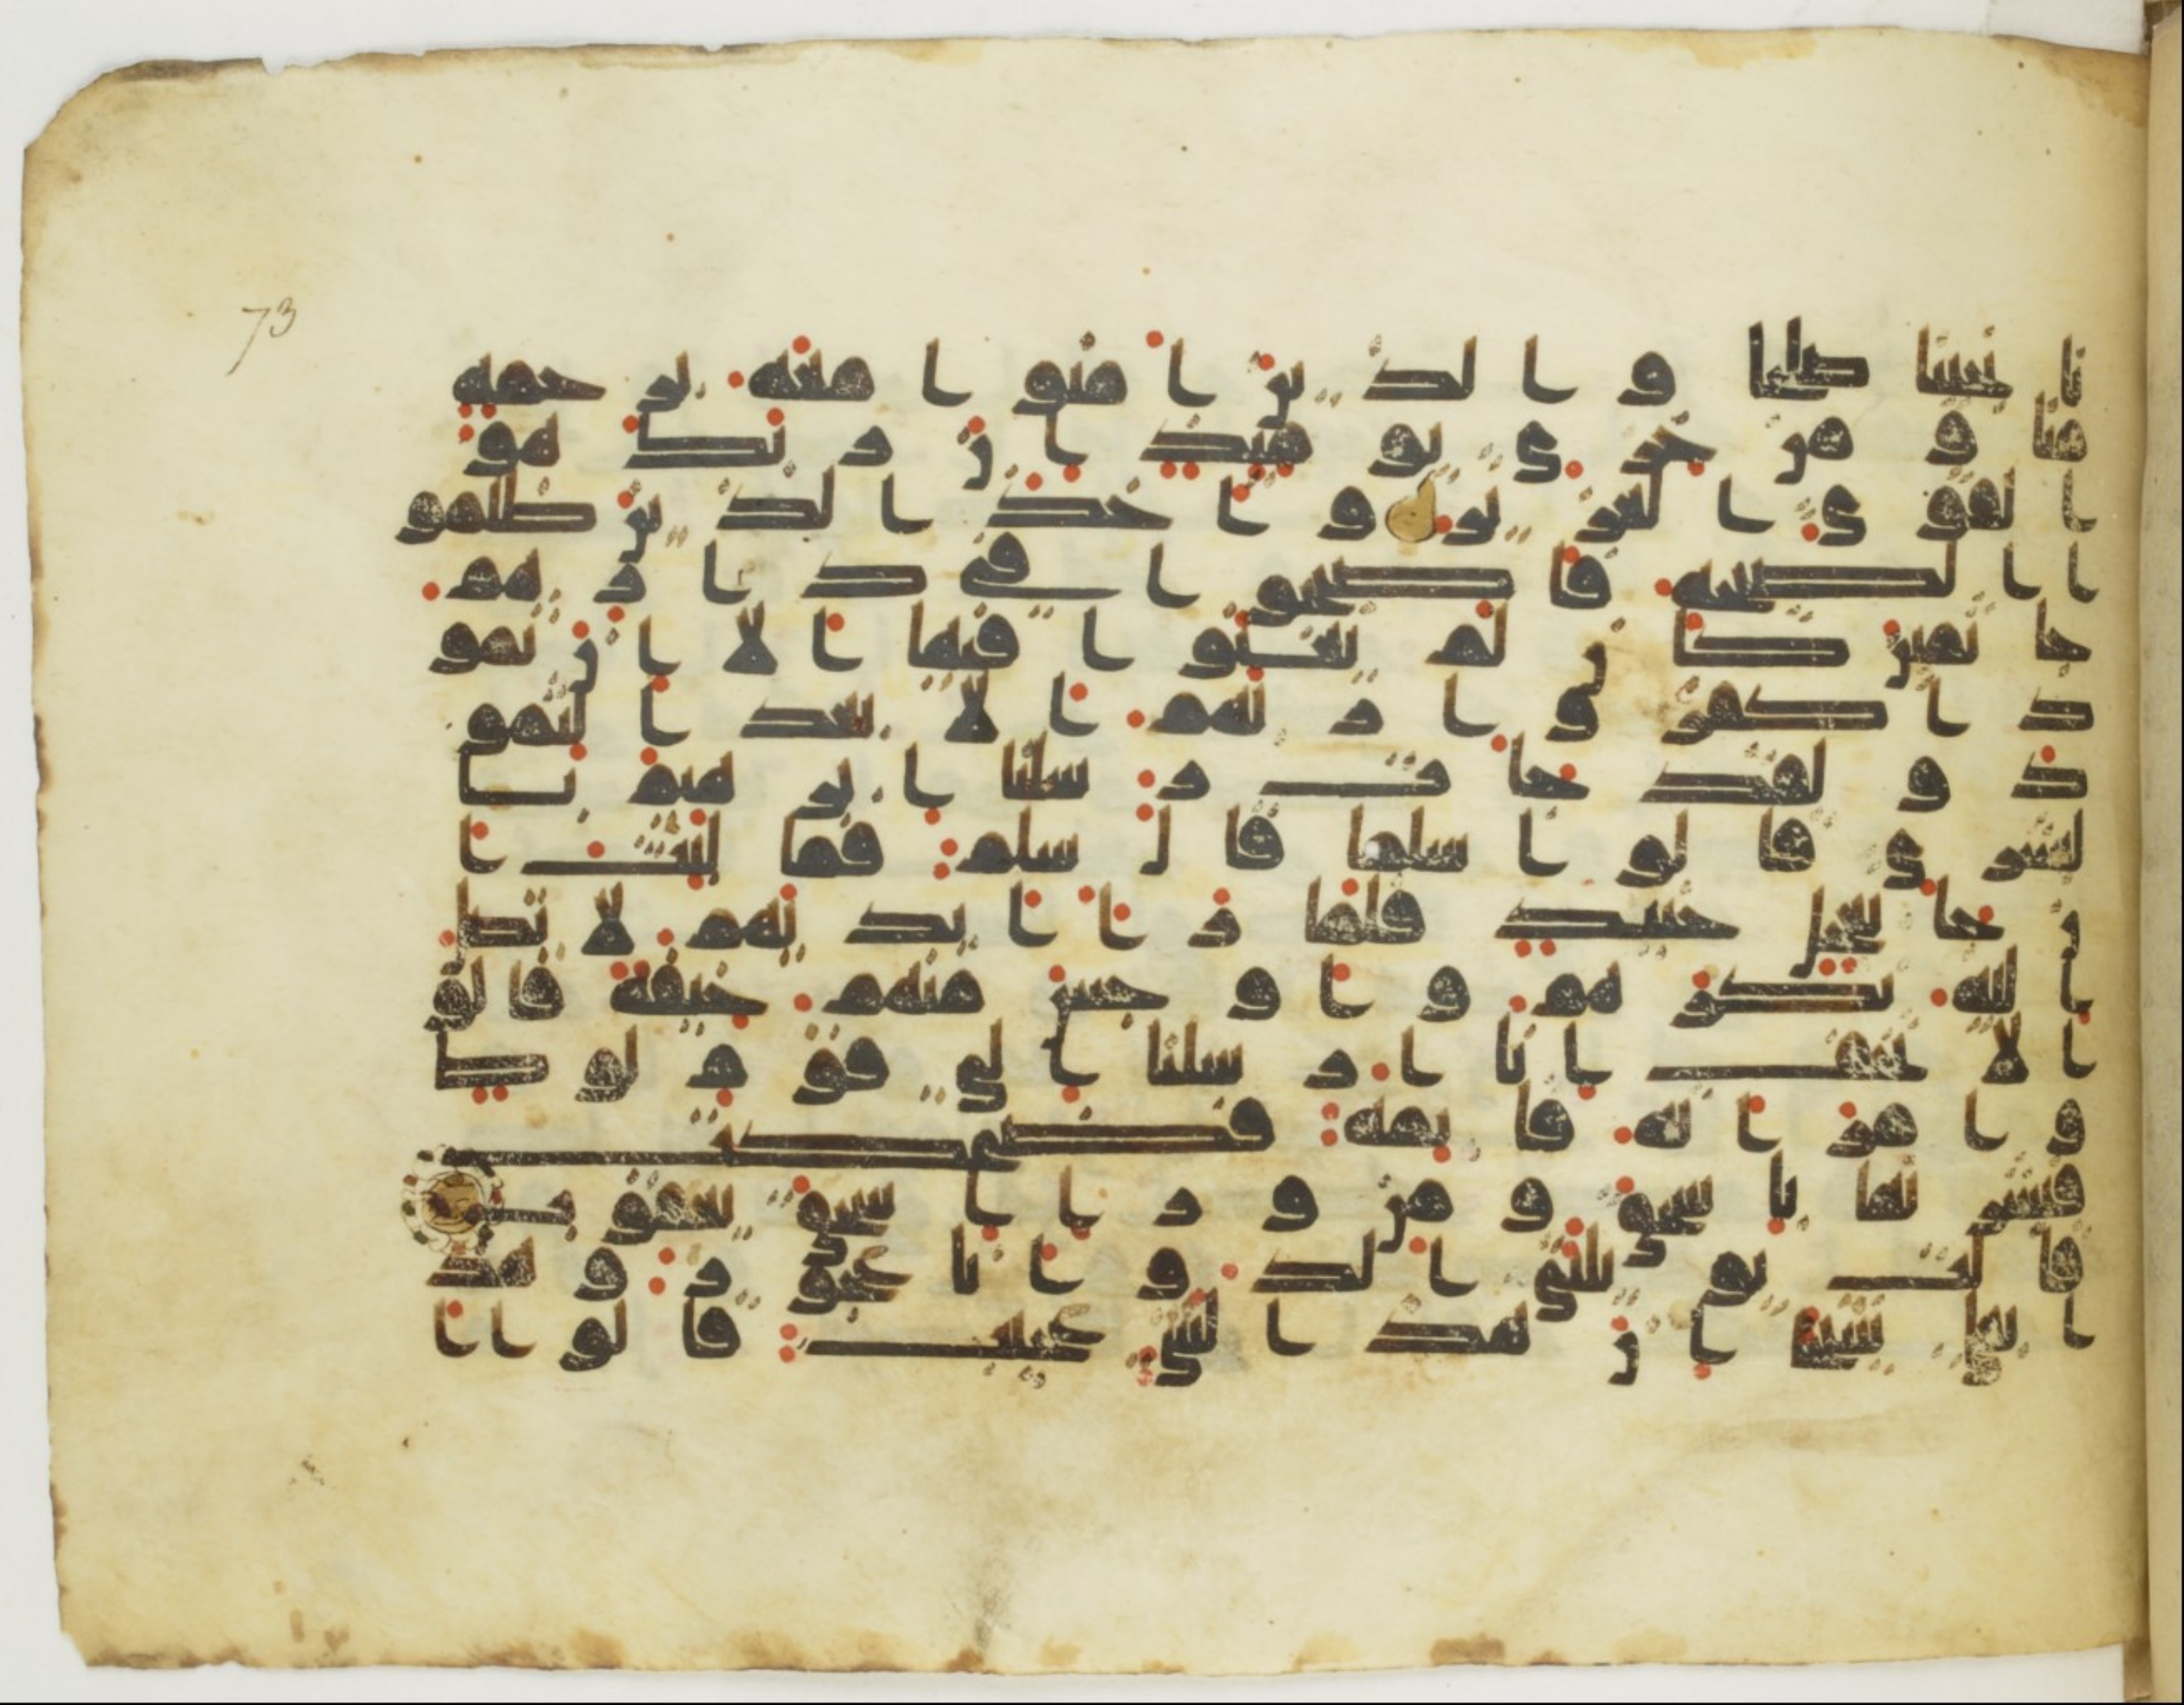 73
نجينا صلحا و الذين امنوا معه برحمه
منا و من خزي يومئذ ان ربك هو
القوي العزيز و اخذ الذين ظلمو
ا الصيحه فاصبحوا في ديارهم
جاثمين كان لم يغنوا فيها الا ان ثمو
دا كفروا ربهم الا بعدا لثمو
د و لقد جات رسلنا ابرهيم با
لبشرى قالوا سلما قال سلم فما لبث ا
ن جا بعجل حنيذ فلما را ايديهم لا تصل
اليه نكرهم و اوجس منهم خيفه قالو
ا لا تخف انا ارسلنا الى قوم لوط
و امراته قايمه فضحكت
فبشرنها باسحق و من ورا اسحق يعقوب
قالت يويلتى االد و انا عجوز و هذ
ا بعلي شيخا ان هذا لشي عجيب قالوا ا